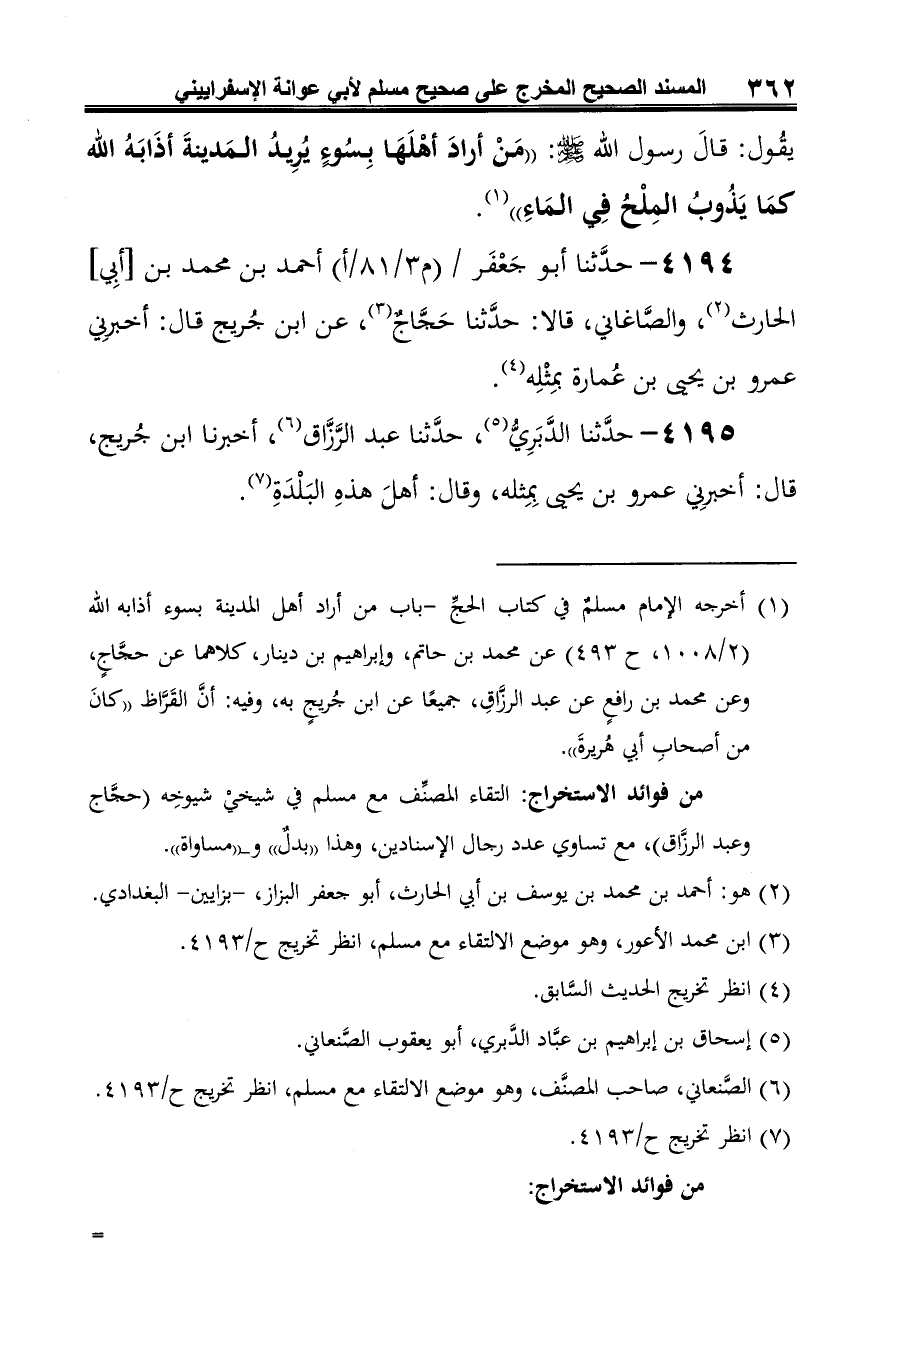 ٣٦٢ المسند الصحيح المخرج على صحيح مسلم لأبي عوانة الإسفراييني
يقُول: قالَ رسول الله ﷺ: ((مَنْ أرادَ أهْلَهَا بِسُوءٍ يُرِيدُ المَدينةَ أذَابَهُ الله
كمَا يَذُوبُ المِلْحُ فِي المَاءِ))(١).
٤١٩٤- حدَّثنا أبو جَعْفَر / (م٨١/٣/أ) أحمد بن محمد بن [أبي]
الحارث(٢)، والصَّاغاني، قالا: حدَّثنا حَجَّاجٌ(٣)، عن ابن جُريج قال: أخبرني
عمرو بن يحيى بن عُمارة بمِثْلِه(٤).
٤١٩٥- حدَّثنا الدَّبَرِيُّ(٥)، حدَّثنا عبد الرَّزَّاق(٦)، أخبرنا ابن جُريج،
قال: أخبرنِي عمرو بن يحيى بمِثله، وقال: أهلَ هذهِ البَلْدَةِ(٧).
(١) أخرجه الإمام مسلمٌ في كتاب الحجِّ -باب من أراد أهل المدينة بسوء أذابه الله
(١٠٠٨/٢، ح ٤٩٣) عن محمد بن حاتم، وإبراهيم بن دينار، كلاهما عن حجَّاجٍ،
وعن محمد بن رافعٍ عن عبد الرزَّاقِ، جميعًا عن ابن جُريجٍ به، وفيه: أنَّ القَرَّاظ ((كانَ
من أصحابِ أبي هُريرةَ)).
من فوائد الاستخراج: التقاء المصنِّف مع مسلم في شيخيْ شيوخِه (حجَّاج
وعبد الرزَّاق)، مع تساوي عدد رجال الإسنادين، وهذا ((بدلٌ)) و_((مساواة)).
(٢) هو: أحمد بن محمد بن يوسف بن أبي الحارث، أبو جعفر البزاز، -بزايين- البغدادي.
(٣) ابن محمد الأعور، وهو موضع الالتقاء مع مسلم، انظر تخريج ح/٤١٩٣.
(٤) انظر تخريج الحديث السَّابق.
(٥) إسحاق بن إبراهيم بن عبَّاد الدَّبري، أبو يعقوب الصَّنعاني.
(٦) الصَّنعاني، صاحب المصنَّف، وهو موضع الالتقاء مع مسلم، انظر تخريج ح/٤١٩٣.
(٧) انظر تخريج ح/٤١٩٣.
من فوائد الاستخراج:
=